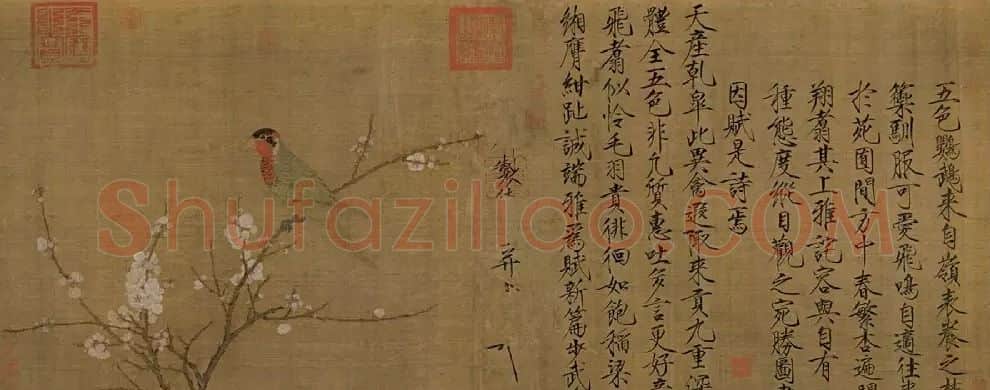 五色鸚鵡來自嶺表養之
籞馴服可愛飛鳴自適往
於苑囿間方中春繁杏遍
翔翥其上雅詫容與自有
種態度縱目觀之宛勝圖
因賦是詩焉
天產乾皋此異禽遐陬來貢九重深
體全五色非凡質惠吐多言更好
飛翥似憐毛羽貴徘徊如飽稻粱
緗膺紺趾誠端雅為賦新篇步武
製
并
Shufaziliao.COM